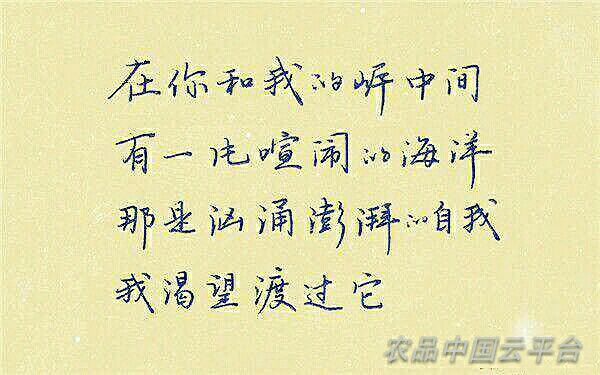 在你和我的岸中间
有一片喧闹的海洋
那是汹涌澎湃的自我
我渴望渡过它
农品中国云平台